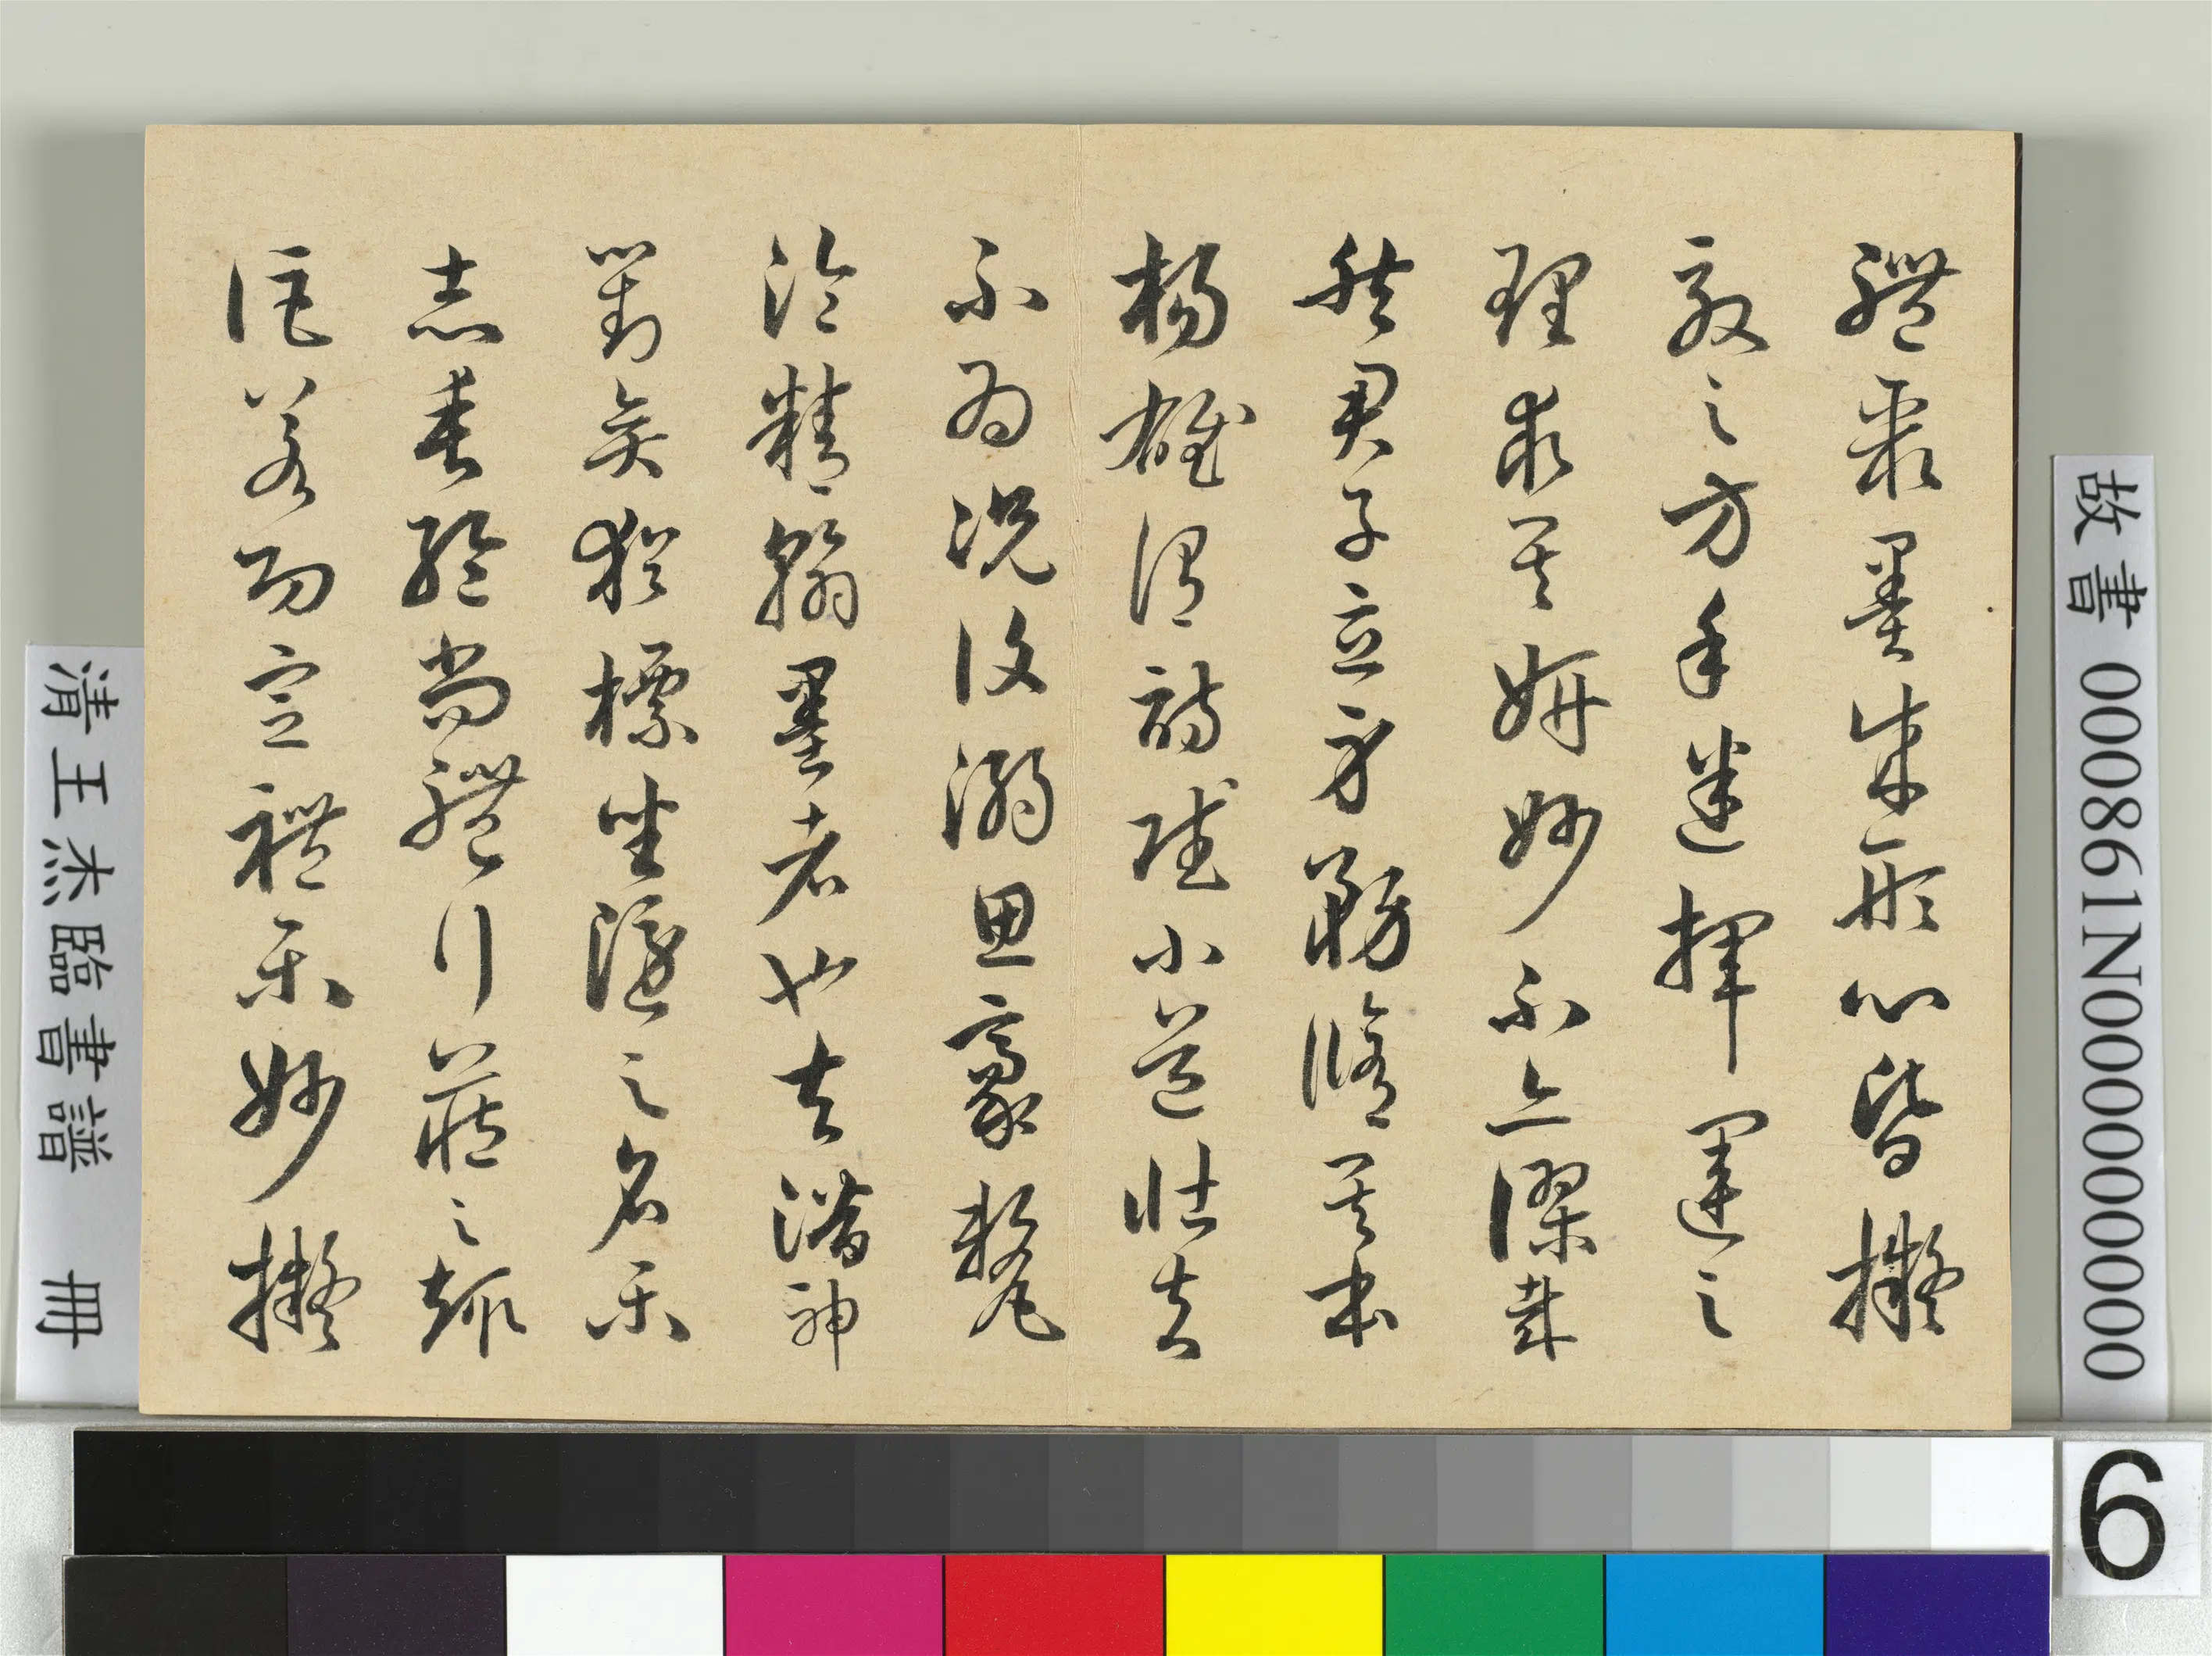 體聚墨成形心昏擬
效之方手迷揮運之
理求其妍妙不亦謬哉
然君子立身務脩其本
楊雄謂詩賦小道壯夫
不為況復溺思豪釐
淪精翰墨者也夫潛神
對奕猶標坐隱之名樂
志垂綸尚體行藏之趣
詎若功宣禮樂妙擬
故書 000861N000000000
清王杰臨書譜 冊
6